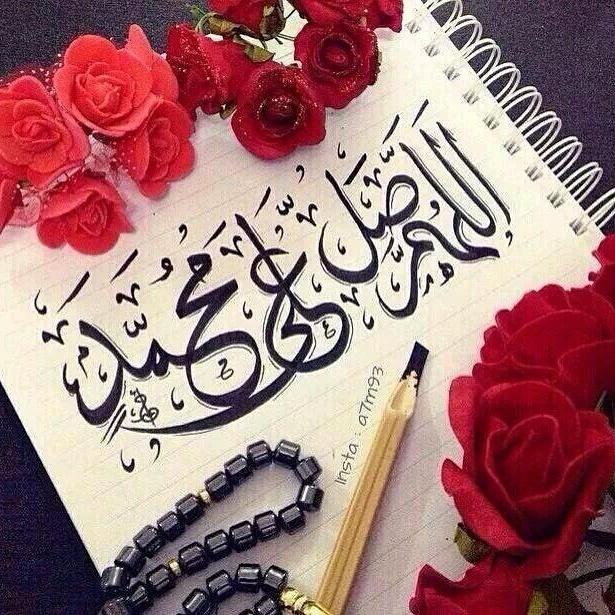 اللهم صَلِّ على مُحَمَّد
Insta : a7m93